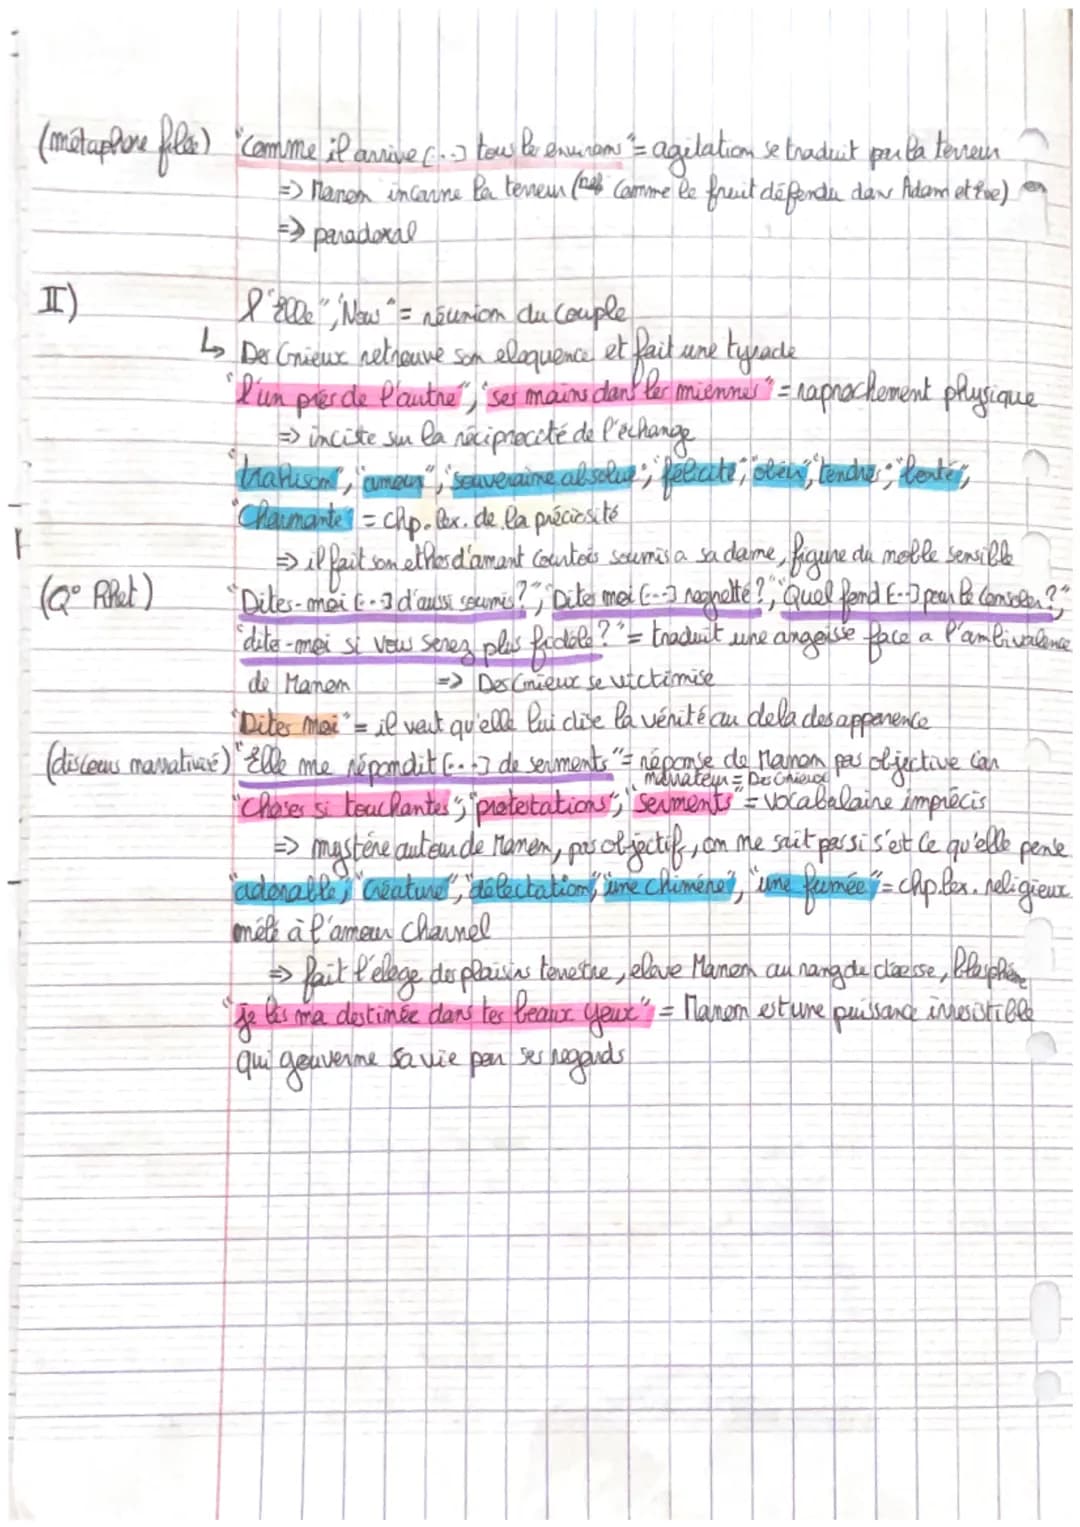 (métaphore filée) "Comme il arrive [...] tous les environs" = agitation se traduit par la terreur
=> Manon incarne la terreur (ref comme le fruit défendu dans Adam et Eve)
=> paradoxal
II) l'"Elle", "Nous" = réunion du couple
↳ Des Grieux retrouve son eloquence et fait une tyrade
"l'un près de l'autre", "ses mains dans les miennes" = raprochement physique
=> inciste sur la réciprocité de l'échange
"trahison", "amour", "souveraine absolue", "félicité", "obéir", "tendres", "bonté",
"Charmante" = chp. lex. de la préciosité
=> il fait son ethos d'amant courtois soumis a sa dame, figure du noble sensible
(Q° Rhet) "Dites-moi [...] d'aussi soumis?", "Dites moi [...] regretté?", "Quel fond [...] pour le consoler?",
"dite-moi si vous serez plus fidèle?" = traduit une angoisse face a l'ambivalence
de Manon => Des Grieux se victimise
"Dites moi" = il veut qu'elle lui dise la vérité au dela des apparence
(discours narrativisé) "Elle me répondit [...] de serments" = réponse de Manon pas objective car
narrateur = Des Grieux
"Choses si touchantes", "protestations", "serments" = vocabulaire imprécis
=> mystère autour de Manon, pas objectif, on ne sait pas si s'est ce qu'elle pense
"adorable", "Créature", "délectation", "une chimère", "une fumée" = chp. lex. religieux
mélé à l'amour charnel
=> fait l'éloge des plaisirs terrestre, eleve Manon au rang de déesse, blasphème
"je lis ma destinée dans tes beaux yeux" = Manon est une puissance irresistible
qui gouverne sa vie par ses regards